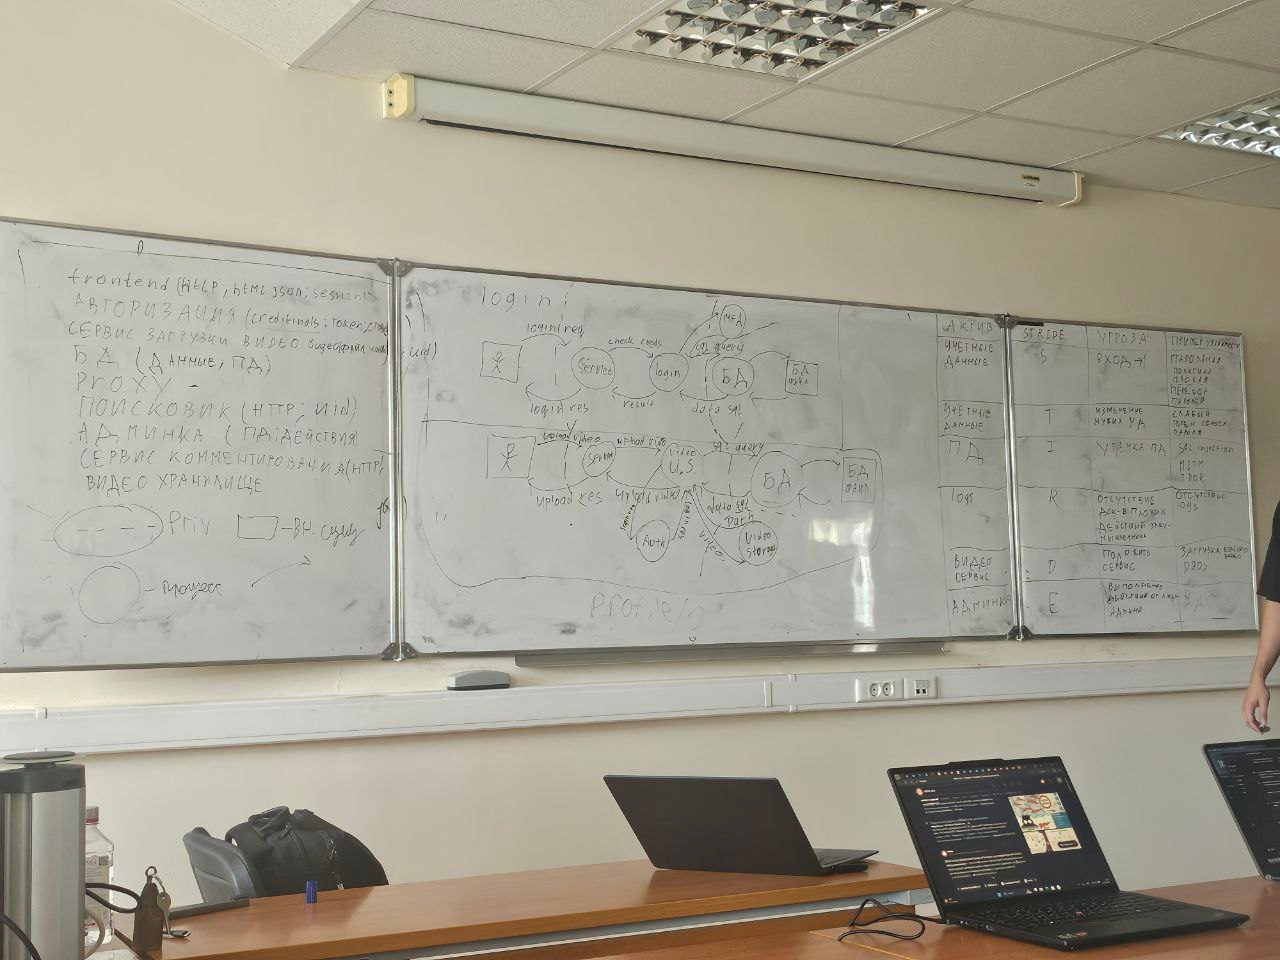 frontend (HTTP, html, json; session)
АВТОРИЗАЦИЯ (creditinals; token;
СЕРВИС ЗАГРУЗКИ ВИДЕО видео(файл
uid)
БД (ДАННЫЕ, ПД)
PROXY -
ПОИСКОВИК (HTTP; uid)
АДМИНКА (ПД; ДЕЙСТВИЯ
СЕРВИС КОММЕНТИРОВАНИЯ (HTTP;
ВИДЕО ХРАНИЛИЩЕ
Priv.
- вн. сущ
- процесс
login
login req
check creds
sql query
MFA
Servlet
login
БД
БД
файл
login res
result
data sql
upload video
upload video
sql query
Servlet
video
U.S.
БД
БД
файл
upload res
upload video
data sql
Path
login req
Auth
video
Video
Storage
profile
АКТИВ
STRIDE
УГРОЗА
ПРИМЕР УЯЗВИМОСТИ
УЧЕТНЫЕ
ДАННЫЕ
S
ВХОД →
ПАРОЛЬНАЯ
ПОЛИТИКА
ПЛОХАЯ
ПЕРЕБОР
ПАРОЛЕЙ
УЧЕТНЫЕ
ДАННЫЕ
T
ИЗМЕНЕНИЕ
ЧУЖИХ УД
СЛАБЫЙ
ТОКЕН СБРОСА
ПАРОЛЯ
ПД
I
УТЕЧКА ПД
SQL injection
MITM
IDOR
logs
R
ОТСУТСТВИЕ
ДОК-В ПЛОХИХ
ДЕЙСТВИЙ ЗЛОУ-
МЫШЛЕННИКА
ОТСУТСТВИЕ
logs
ВИДЕО
СЕРВИС
D
ПОЛОЖИТЬ
СЕРВИС
ЗАГРУЗКА
DDOS
АДМИНКА
E
ВЫПОЛНЕНИЕ
ДЕЙСТВИЯ ОТ ЛИЦА
АДМИНА